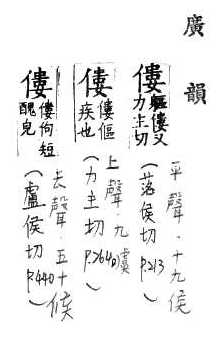 廣韻
僂 軀僂又力主切
(落侯切 P.213)
平聲.十九侯
僂 僂傴疾也
(力主切 P.264)
上聲.九麌
僂 僂佝短醜皃
(盧侯切 P.440)
去聲.五十候